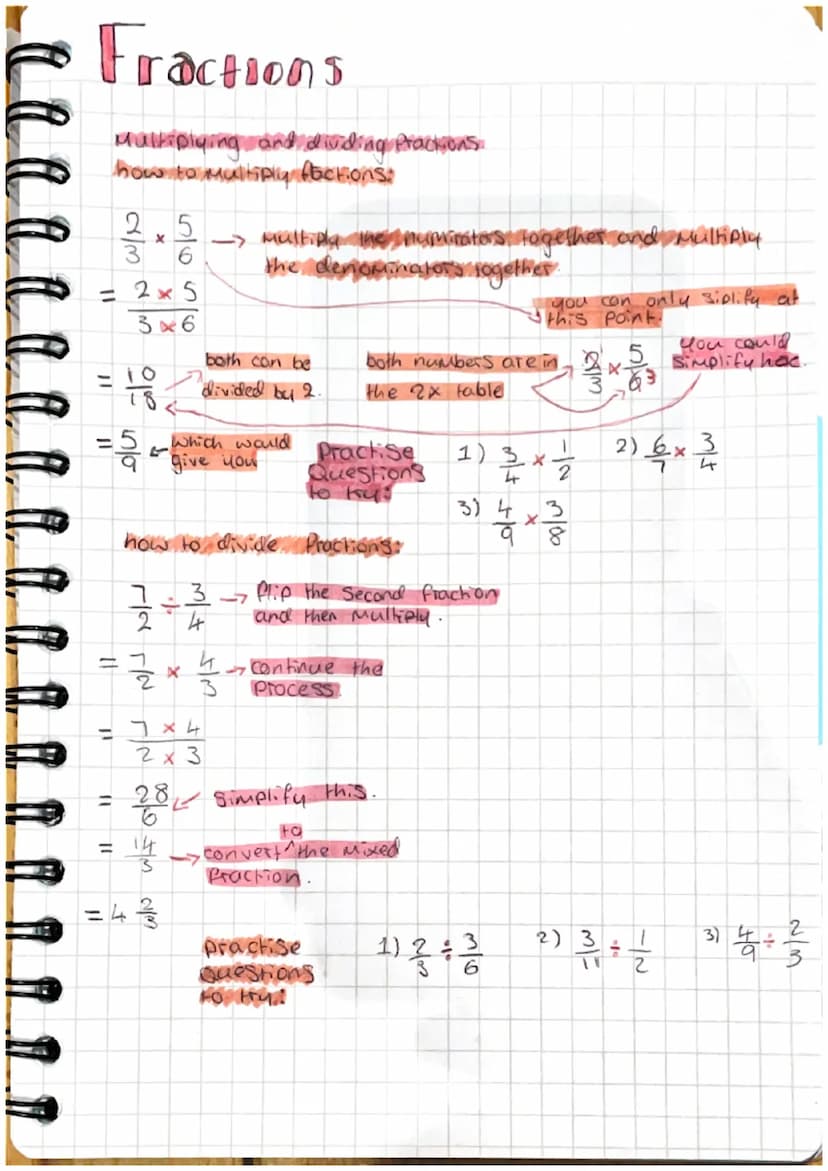 Fractions
Multiplying and dividing fractions
how to multiply factions:
2/3 × 5/6 → Multiply the numirators together and multiply
the denominators together.
= 2 × 5 / 3 × 6
you can only siplify at
this point.
= 10/18
both can be
divided by 2.
both numbers are in
the 2x table
2/3 × 5/6 1 3
you could
simplify here.
= 5/9 ← which would
give you
Practise
Questions
to try:
1) 3/4 × 1/2 2) 6/7 × 3/4
3) 4/9 × 3/8
how to divide fractions:
7/2 ÷ 3/4 → flip the second fraction
and then multiply.
= 7/2 × 4/3 → continue the
process.
= 7 × 4 / 2 × 3
= 28/6 ← simplify this.
= 14/3 → convert ^to the mixed
fraction.
= 4 2/3
practise
questions
to try:
1) 2/3 ÷ 3/6 2) 3/11 ÷ 1/2 3) 4/9 ÷ 2/3